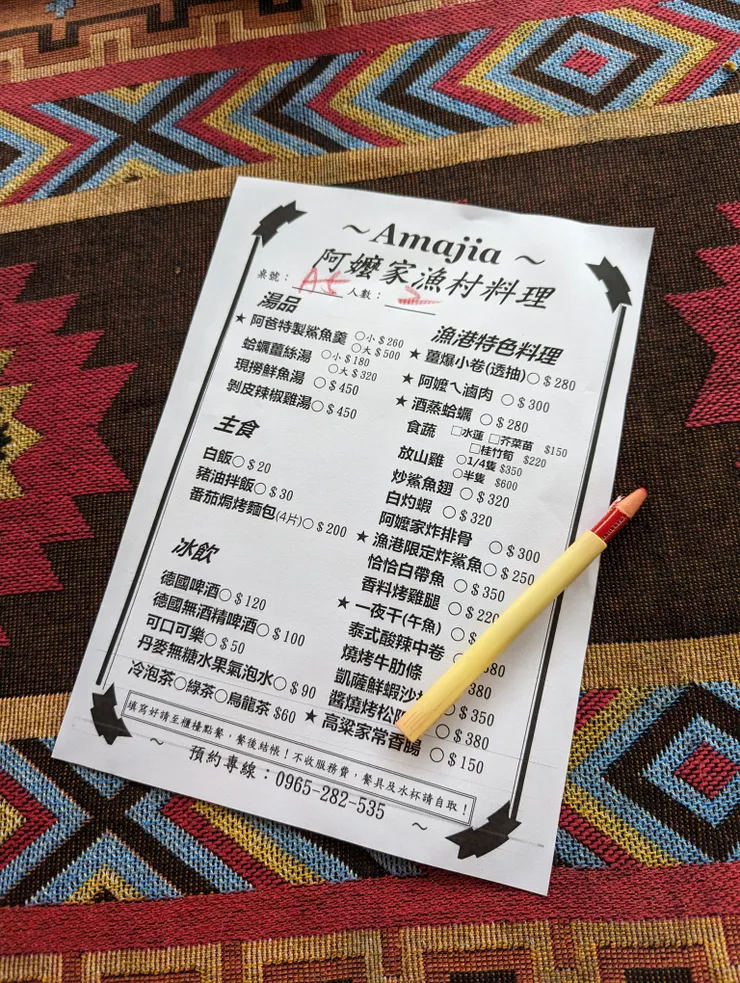 ～Amajia～
阿嬤家漁村料理
桌號： A5 人數： 2
湯品
★ 阿爸特製鯊魚羹 ○小 $260
○大 $500
蛤蠣薑絲湯 ○小 $180
○大 $320
現撈鮮魚湯 ○ $450
剝皮辣椒雞湯○ $450
主食
白飯○ $20
豬油拌飯○ $30
番茄焗烤麵包(4片)○ $200
冰飲
德國啤酒○ $120
德國無酒精啤酒○ $100
可口可樂○ $50
丹麥無糖水果氣泡水○ $90
冷泡茶○綠茶○烏龍茶 $60
漁港特色料理
★ 薑爆小卷(透抽)○ $280
★ 阿嬤ㄟ滷肉 ○ $300
★ 酒蒸蛤蠣 ○ $280
食蔬 □水蓮 □芥菜苗 $150
□桂竹筍 $220
放山雞 ○1/4隻 $350
○半隻 $600
炒鯊魚翅 ○ $320
白灼蝦 ○ $320
阿嬤家炸排骨 ○ $300
★ 漁港限定炸鯊魚○ $250
恰恰白帶魚 ○ $350
香料烤雞腿 ○ $220
★ 一夜干(午魚) ○ $
泰式酸辣中卷 ○ 80
燒烤牛肋條 380
凱薩鮮蝦沙 ○ $350
醬燒烤松 ○ $380
★ 高粱家常香腸 ○ $150
填寫好請至櫃檯點餐，餐後結帳！不收服務費，餐具及水杯請自取！
～ 預約專線：0965-282-535 ～